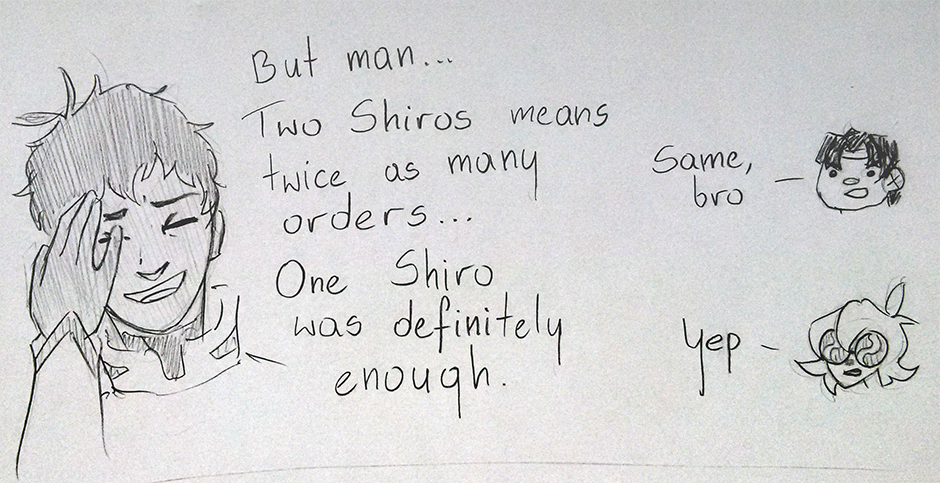 But man...
Two Shiros means
twice as many
orders...
One Shiro
was definitely
enough.
Same,
bro
Yep